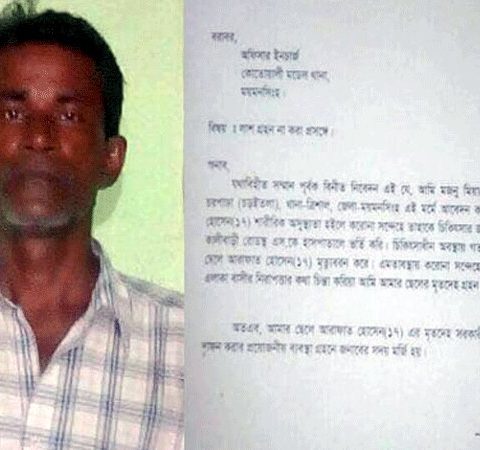 বরাবর,
অফিসার ইনচার্জ
কোতোয়ালী মডেল থানা,
ময়মনসিংহ।
বিষয় : লাশ গ্রহন না করা প্রসঙ্গে।
জনাব,
যথাবিহীত সম্মান পূর্বক বিনীত নিবেদন এই যে, আমি মজনু মিয়া
চরপাড়া (চড়ইতলা), থানা-ত্রিশাল, জেলা-ময়মনসিংহ এই মর্মে আবেদন ক
হোসেন(১৭) শারীরিক অসুস্থতা হইলে করোনা সন্দেহে তাহাকে চিকিৎসার জ
কালীবাড়ী রোডস্থ এস.কে হাসপাতালে ভর্তি করি। চিকিৎসাধীন অবস্থায় গত
ছেলে আরাফাত হোসেন(১৭) মৃত্যুবরন করে। এমতাবস্থায় করোনা সন্দেহে
এলাকা বাসীর নিরাপত্তার কথা চিন্তা করিয়া আমি আমার ছেলের মৃতদেহ গ্রহন
অতএব, আমার ছেলে আরাফাত হোসেন(১৭) এর মৃতদেহ সরকারী
দাফন করার প্রয়োজনীয় ব্যবস্থা গ্রহনে জনাবের সদয় মর্জি হয়।